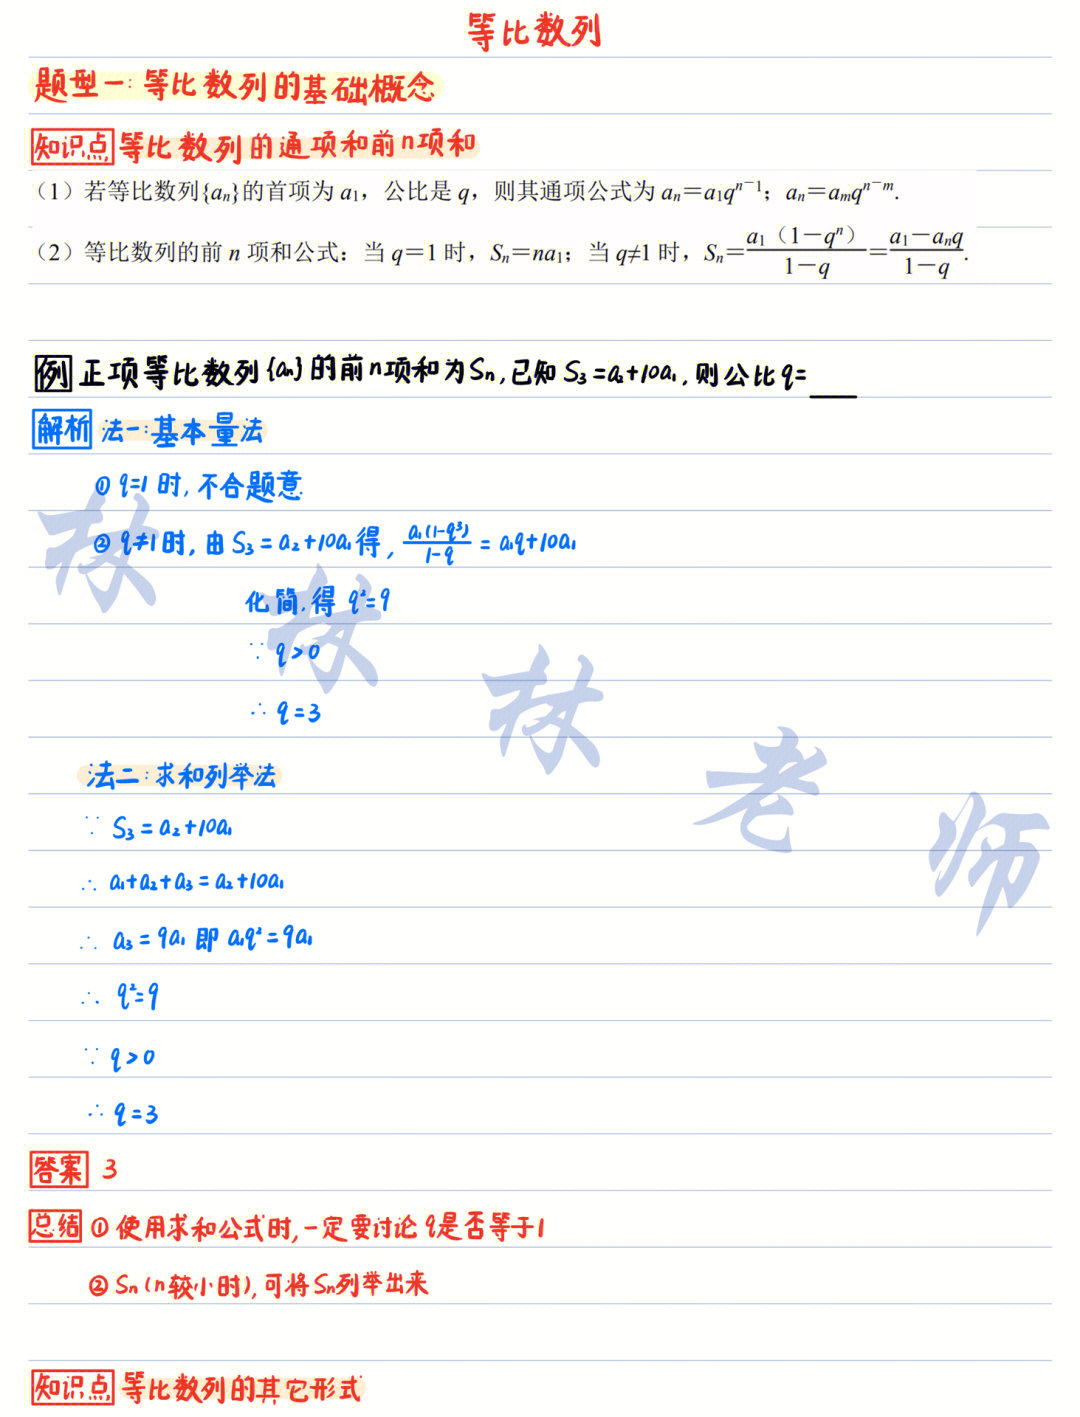 等比数列
题型一:等比数列的基础概念
知识点 等比数列的通项和前n项和
（1）若等比数列{aₙ}的首项为 a₁，公比是 q，则其通项公式为 aₙ＝a₁qⁿ⁻¹；aₙ＝aₘqⁿ⁻ᵐ.
（2）等比数列的前 n 项和公式：当 q＝1 时，Sₙ＝na₁；当 q≠1 时，Sₙ＝a₁（1－qⁿ）/1－q＝a₁－aₙq/1－q.
例 正项等比数列{aₙ}的前n项和为Sₙ,已知S₃=a₂+10a₁,则公比q=___
解析 法一:基本量法
① q=1时,不合题意
② q≠1时,由S₃=a₂+10a₁得, a₁(1-q³)/1-q = a₁q+10a₁
化简,得 q²=9
∵ q>0
∴ q=3
法二:求和列举法
∵ S₃=a₂+10a₁
∴ a₁+a₂+a₃=a₂+10a₁
∴ a₃=9a₁ 即 a₁q²=9a₁
∴ q²=9
∵ q>0
∴ q=3
答案 3
总结 ① 使用求和公式时,一定要讨论q是否等于1
② Sₙ(n较小时),可将Sₙ列举出来
知识点 等比数列的其它形式
林林林老师